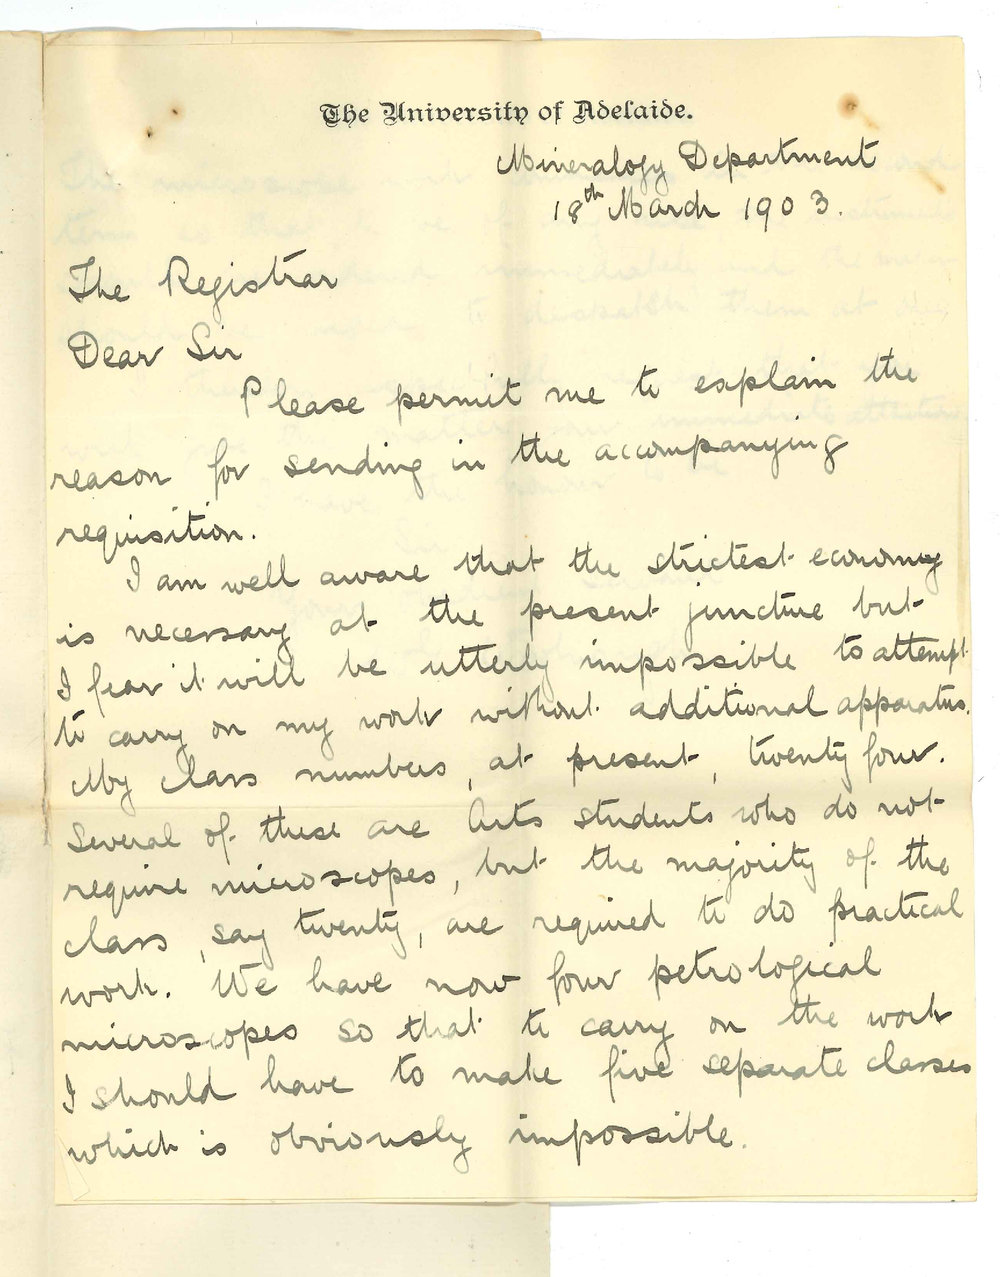 The University of Adelaide.
Mineralogy Department
18th March 1903.
The Registrar
Dear Sir
Please permit me to explain the
reason for sending in the accompanying
requisition.
I am well aware that the strictest economy
is necessary at the present juncture but
I fear it will be utterly impossible to attempt
to carry on my work without additional apparatus.
My class numbers, at present, twenty four.
Several of these are Arts students who do not
require microscopes, but the majority of the
class, say twenty, are required to do practical
work. We have now four petrological
microscopes so that to carry on the work
I should have to make five separate classes
which is obviously impossible.